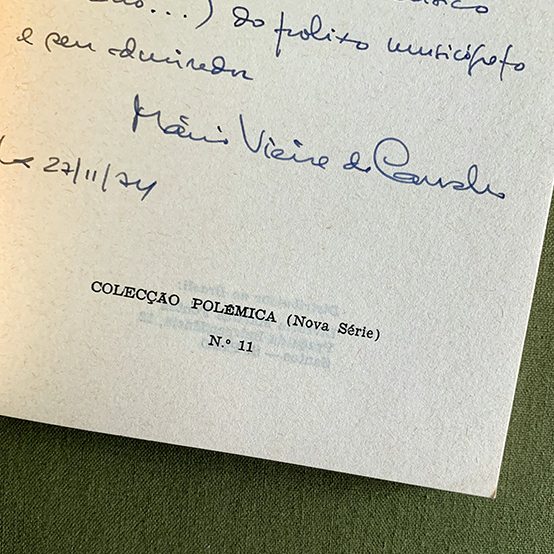 do polixo musicógrafo
e seu admirador
Mário Vieira de Carvalho
27/11/74
COLECÇÃO POLÉMICA (Nova Série)
N.º 11